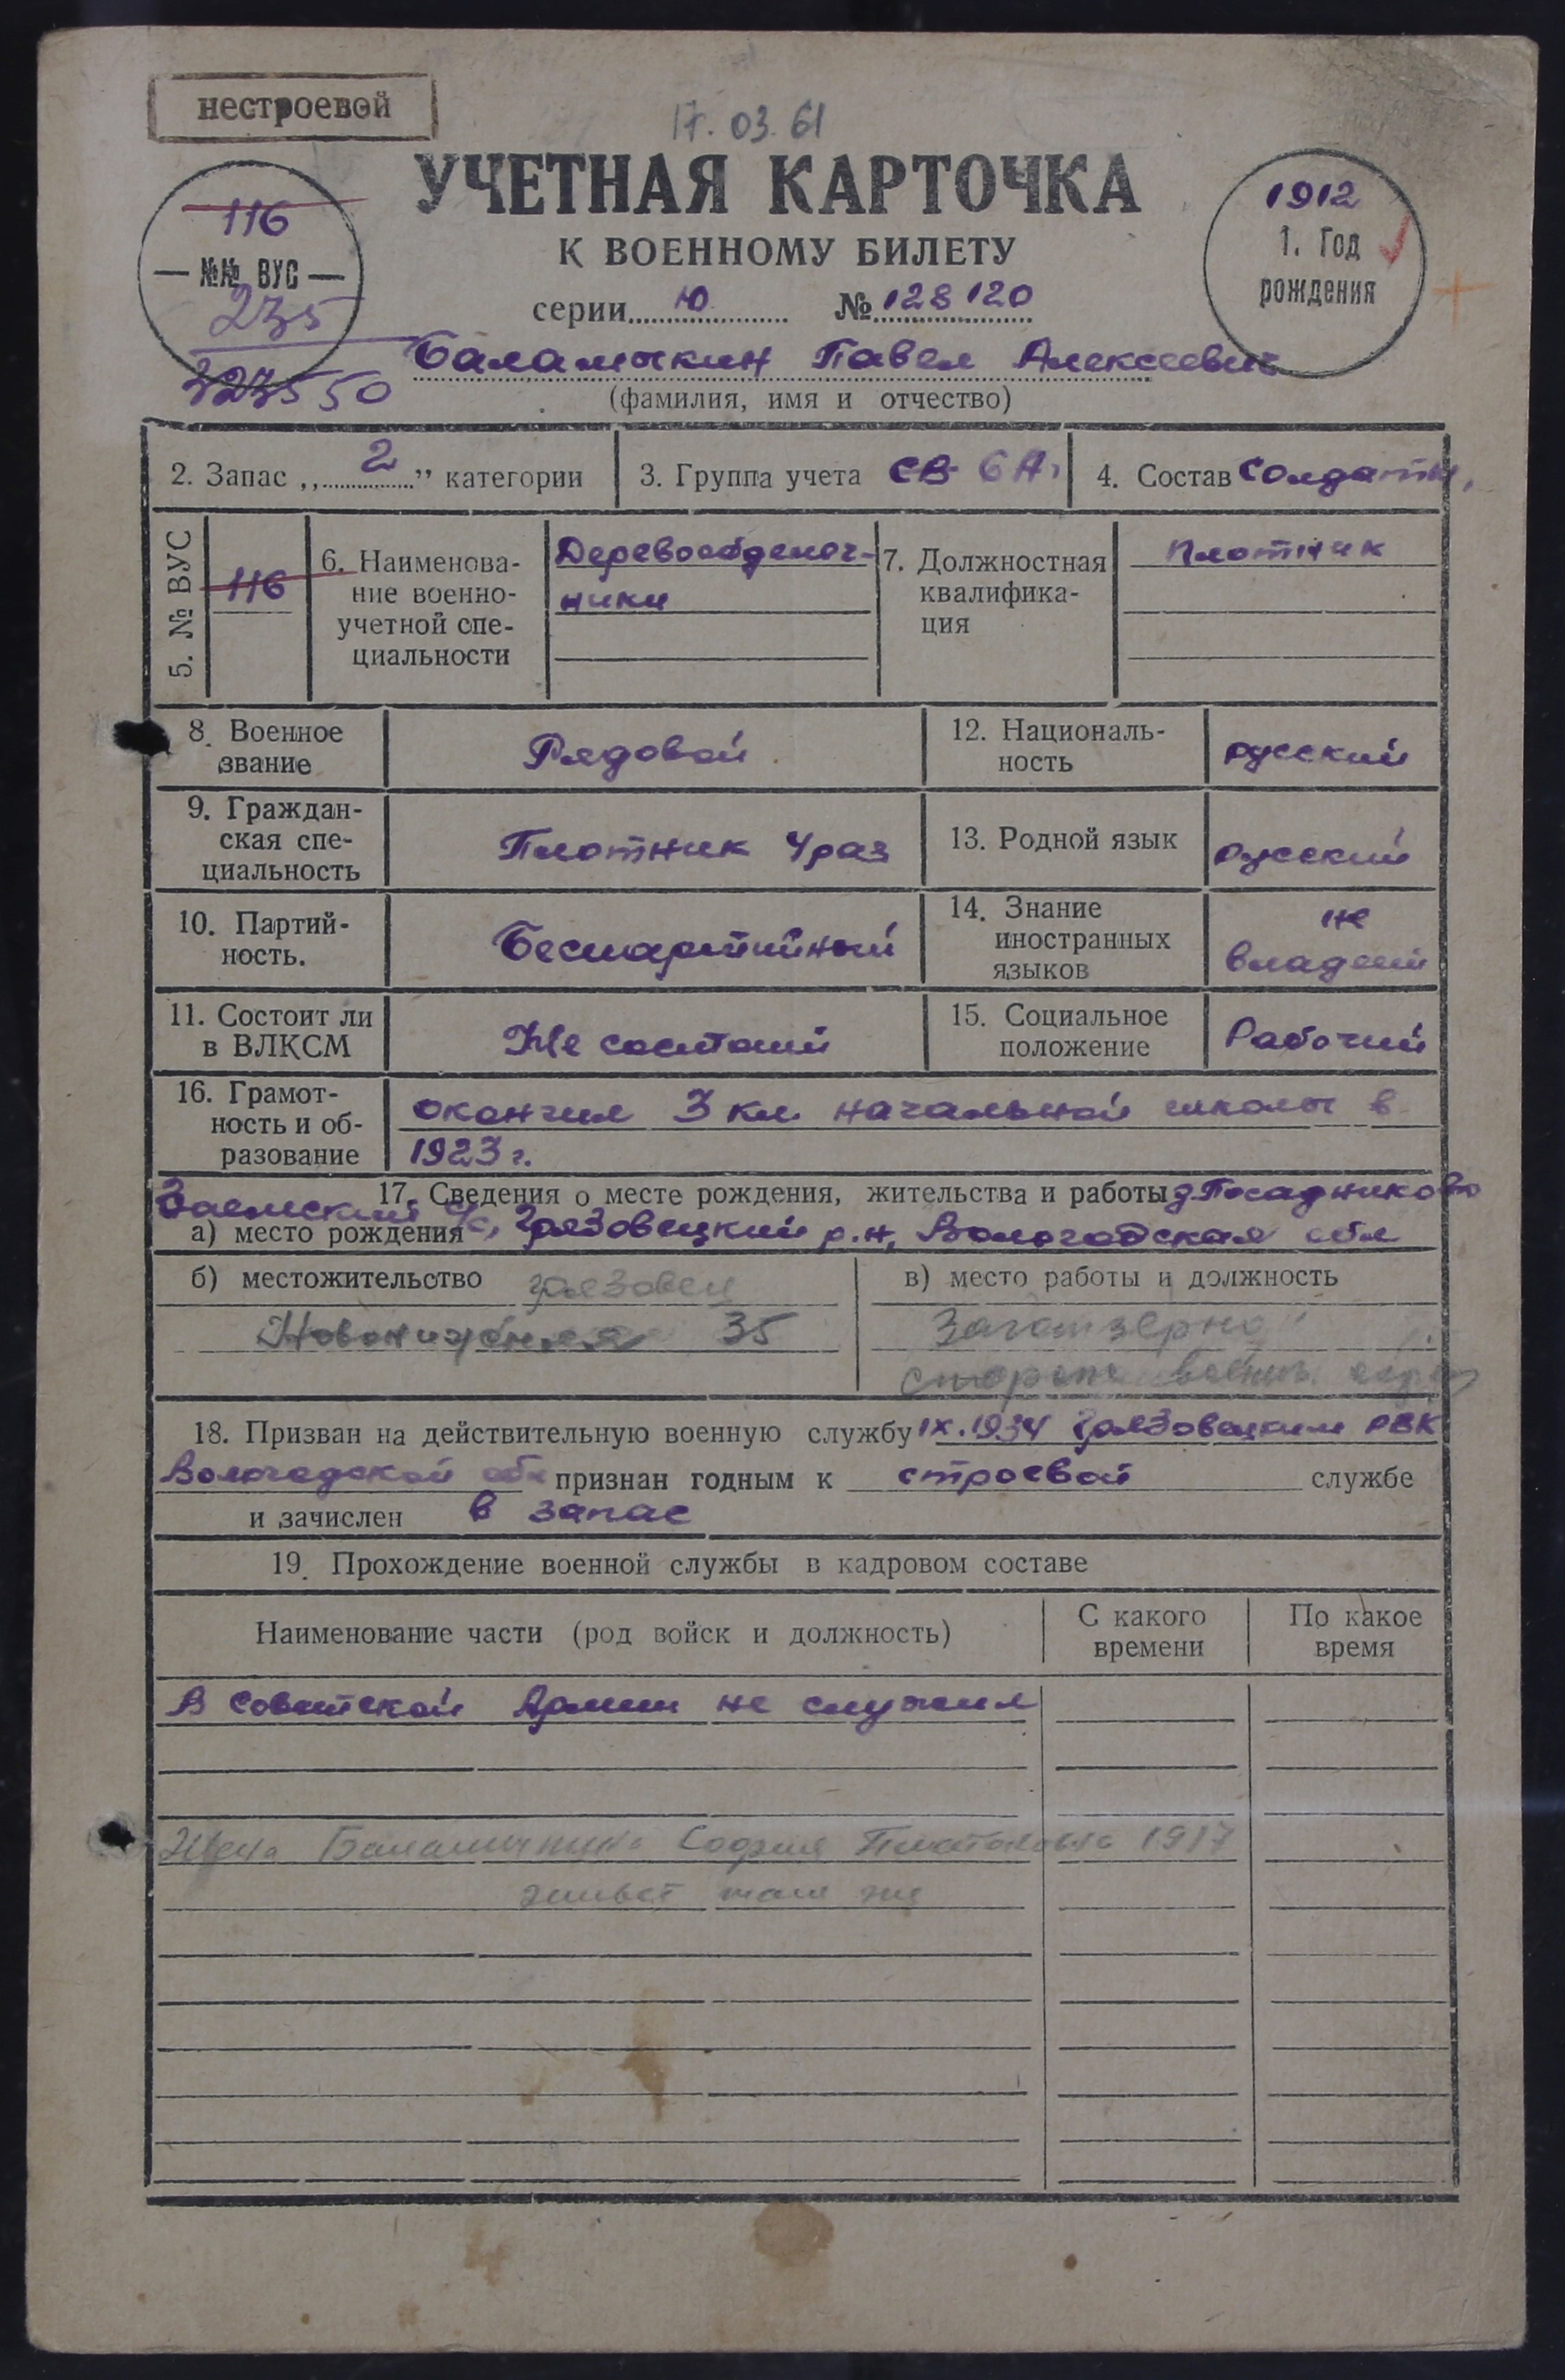 нестроевой
17.03.61
УЧЕТНАЯ КАРТОЧКА
К ВОЕННОМУ БИЛЕТУ
серии Ю № 128120
116
№№ ВУС
235
3235 50
1912
1. Год
рождения
Баламыкин Павел Алексеевич
(фамилия, имя и отчество)
2. Запас „2” категории
3. Группа учета СВ 6А
4. Состав Солдаты,
5. № ВУС 116
6. Наименова-
ние военно-
учетной спе-
циальности
Деревообделоч-
ники
7. Должностная
квалифика-
ция
плотник
8. Военное
звание
Рядовой
12. Националь-
ность
русский
9. Граждан-
ская спе-
циальность
Плотник 4 раз
13. Родной язык
русский
10. Партий-
ность.
Беспартийный
14. Знание
иностранных
языков
не
владеет
11. Состоит ли
в ВЛКСМ
Не состоит
15. Социальное
положение
Рабочий
16. Грамот-
ность и об-
разование
окончил 3 кл. начальной школы в
1923 г.
17. Сведения о месте рождения, жительства и работы д. Посадниково
Заемский с/с,
а) место рождения Грязовецкий р.н, Вологодская обл
б) местожительство Грязовец
35
в) место работы и должность
Заготзерно
18. Призван на действительную военную службу IX.1934 Грязовецким РВК
Вологодской обл признан годным к строевой службе
и зачислен в запас
19. Прохождение военной службы в кадровом составе
Наименование части (род войск и должность)
С какого
времени
По какое
время
В Советской Армии не служил
Жена Баламыкина София Платоновна 1917
живет там же